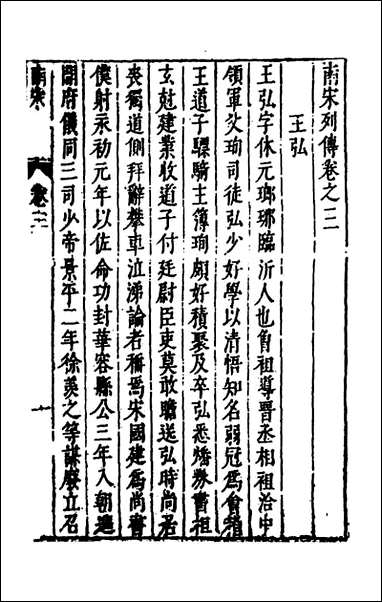 南宋列傳卷之二
王弘
王弘字休元瑯琊臨沂人也曾祖導晋丞相祖洽中
領軍父珣司徒弘少好學以清悟知名弱冠爲會稽
王道子驃騎主簿珣頗好積聚及卒弘悉燔券書桓
玄尅建業收道子付廷尉臣吏莫敢瞻送弘時尚居
喪獨道側拜辭攀車泣涕論者稱焉宋國建爲尚書
僕射永初元年以佐命功封華容縣公三年入朝進
開府儀同三司少帝景平二年徐羡之等謀廢立召
南宋 卷二 一